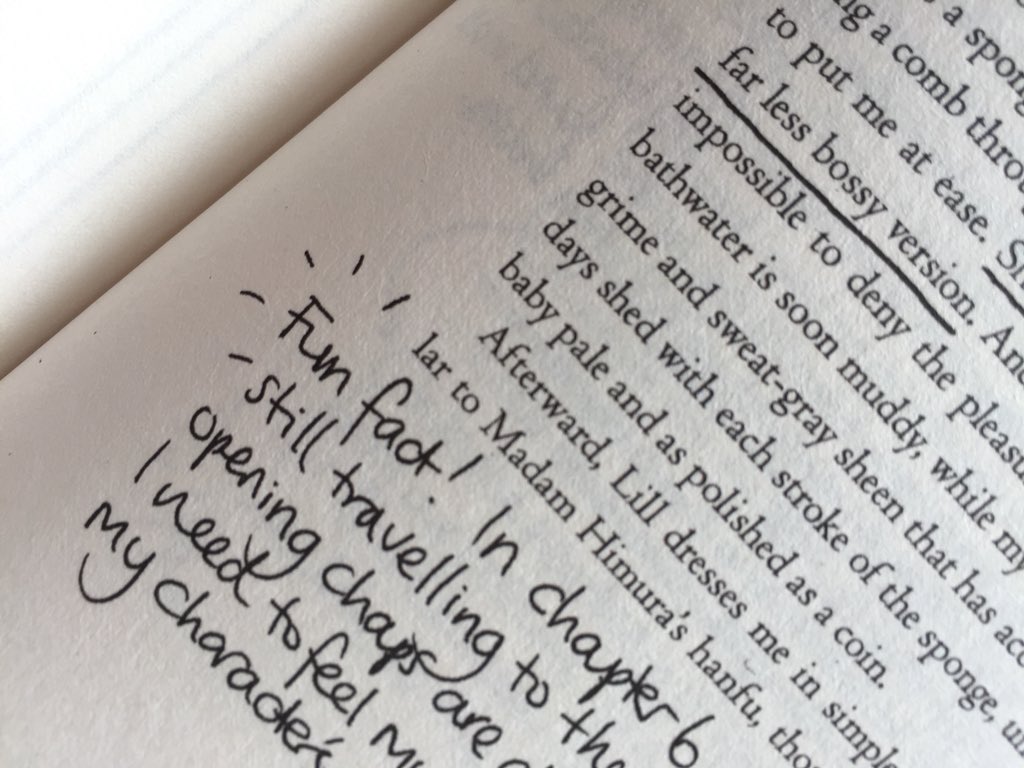 a
ng a comb
to put me at ease.
far less bossy version. And
impossible to deny the
bathwater is soon muddy, while my
grime and sweat-gray sheen that has
days shed with each stroke of the sponge,
baby pale and as polished as a coin.
Afterward, Lill dresses me in simple
lar to Madam Himura's hanfu,
Fun fact! In chapter 6
still travelling to
opening chaps are
I need to feel
my